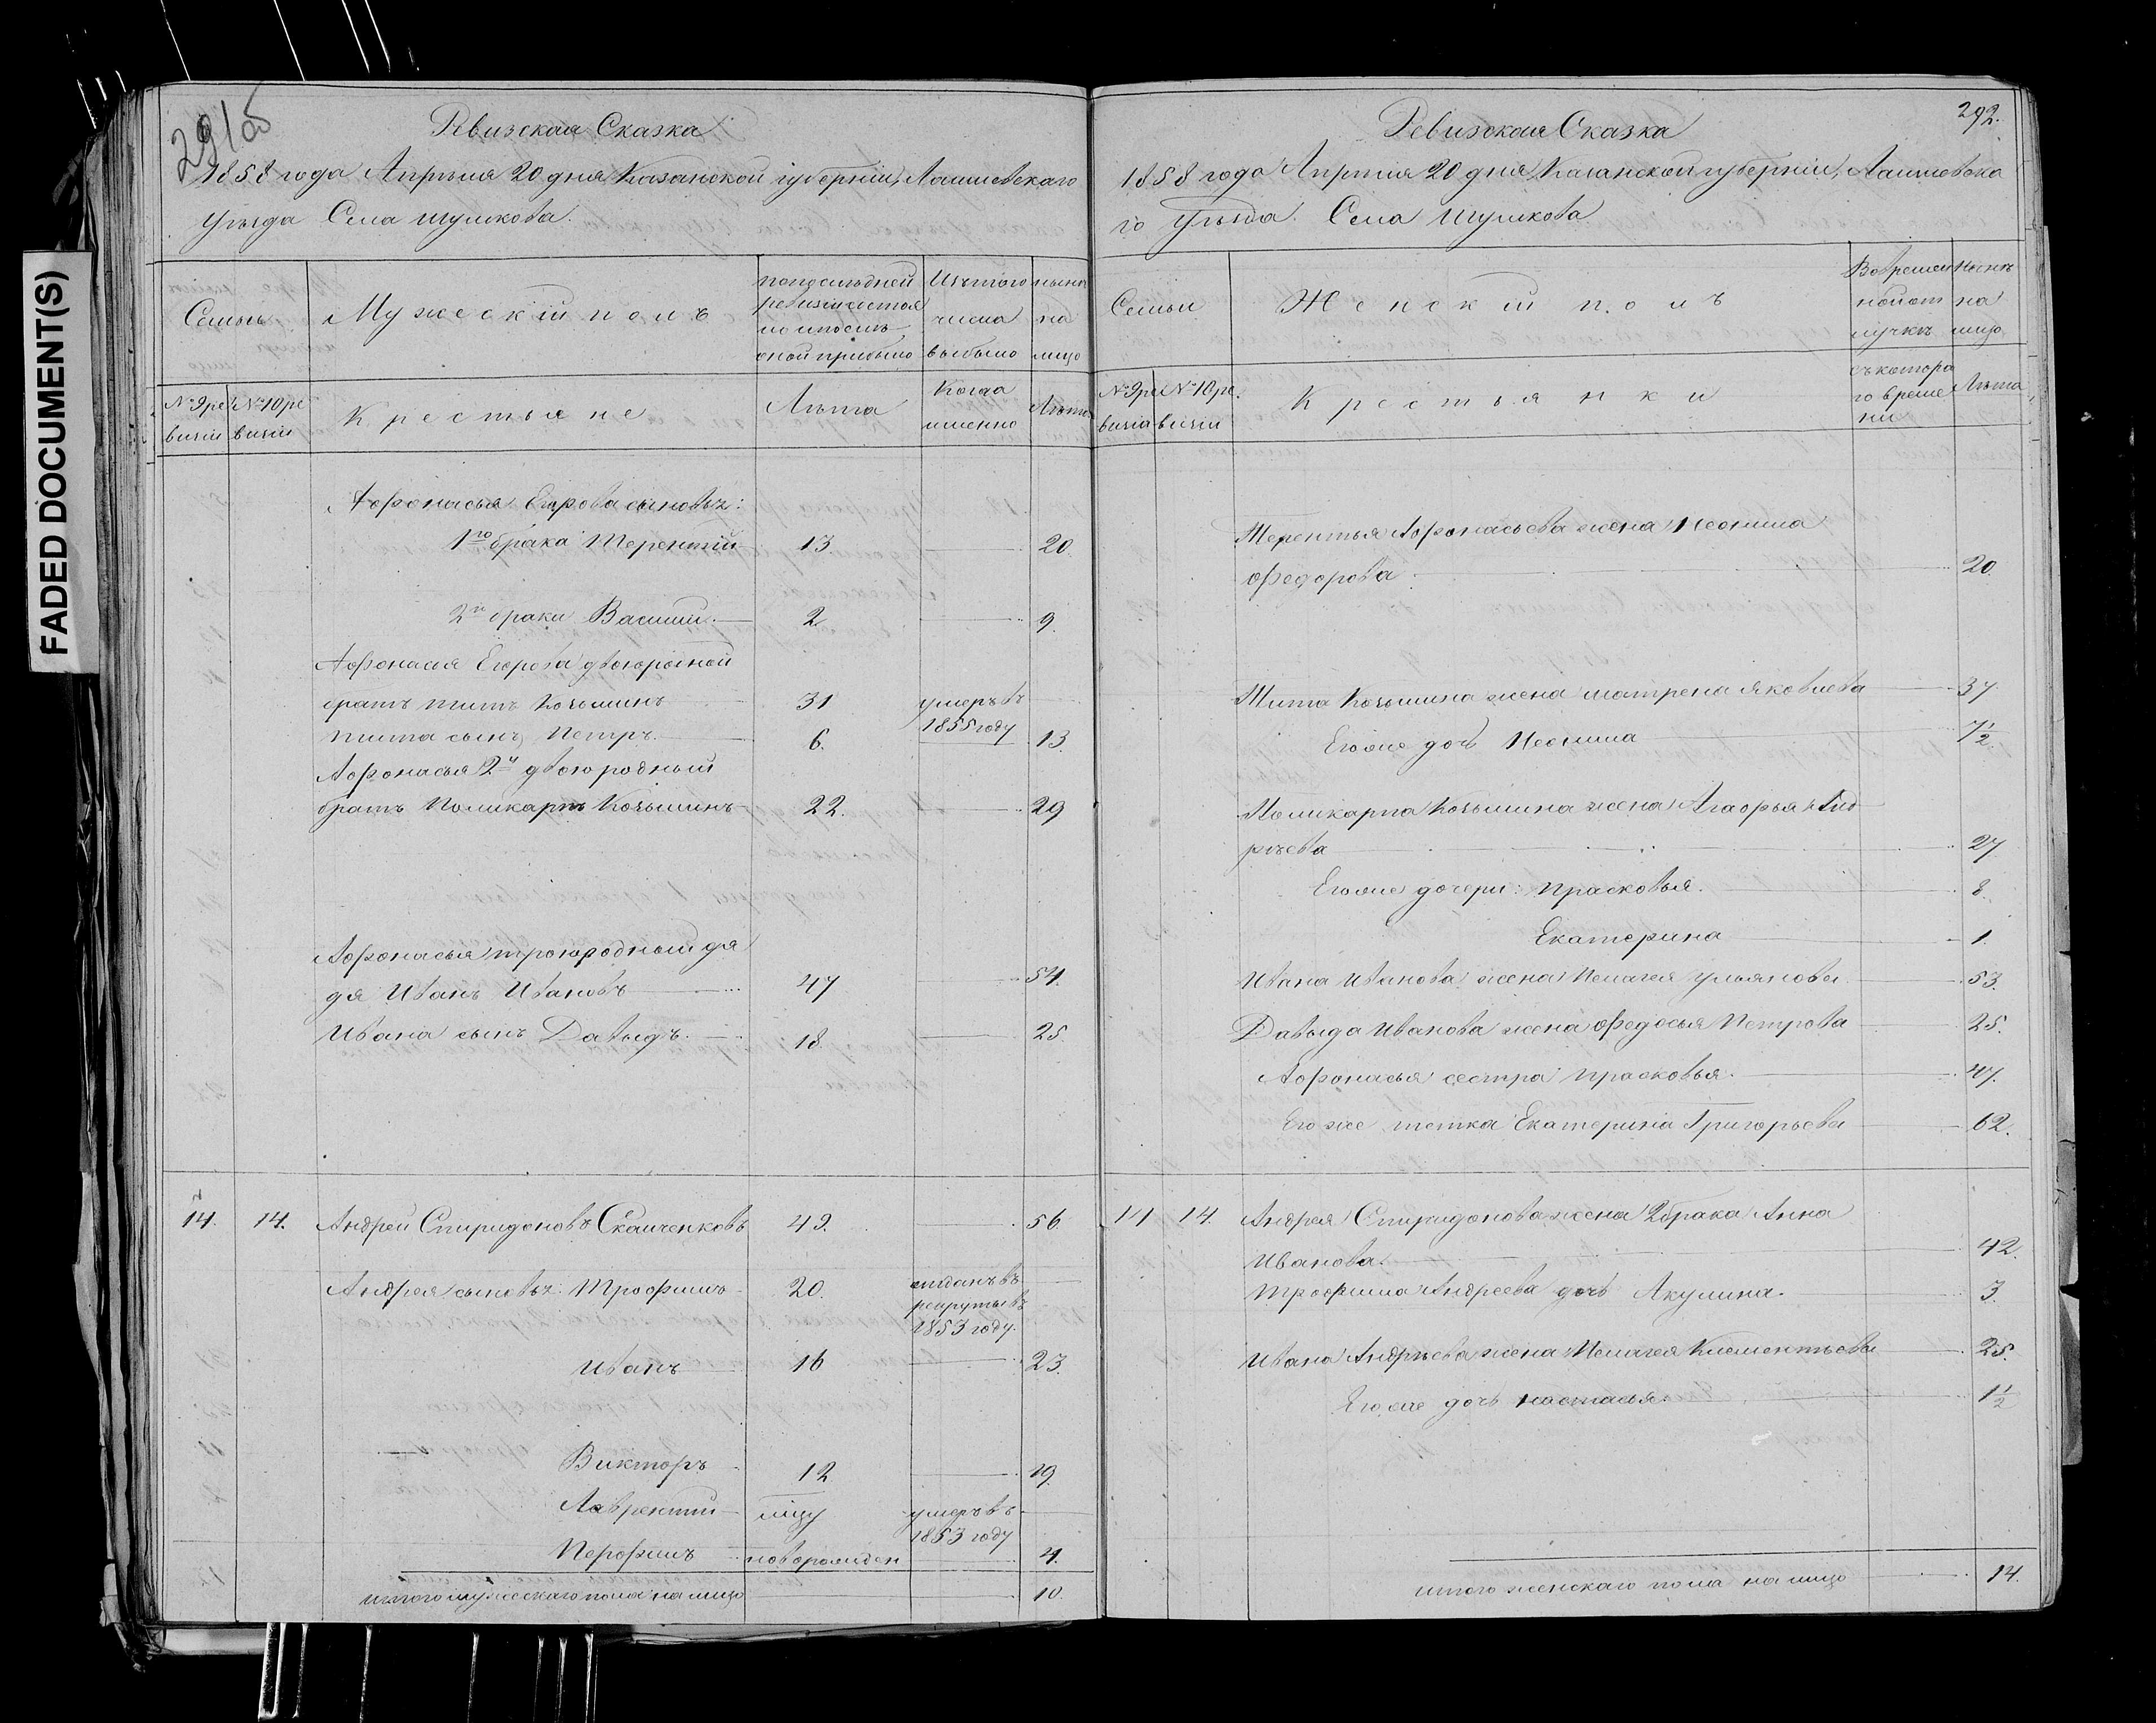 FADED DOCUMENT(S)
291об
Ревизская Сказка
1858 года Апрѣля 20 дня Казанской губерніи, Лаишевскаго
Уѣзда Села Шумкова.
Семьи
Мужескій полъ
по последней ревизіи состояло и после оной прибыло
Изъ того числа выбыло
ныне на лицо
№ 9 ревизіи
№ 10 ревизіи
Крестьяне
Лѣта
Когда именно
Лѣта
Афонасья Егорова сыновья:
1го брака Терентій 13 20.
2й брака Василій 2 9.
Афонасья Егорова двоюродной
братъ Титъ Козьминъ 31 умеръ въ 1855 году
Тита сынъ Петръ. 6. 13.
Афонасья 2й двоюродный
братъ Поликарпъ Козьминъ 22. 29
Афонасья троюродный дя
дя Иванъ Ивановъ 47 54.
Ивана сынъ Давыдъ. 18. 25
14. 14. Андрей Спиридоновъ 49. 56.
Андрея сыновья: Трофимъ 20. отданъ въ рекруты въ 1853 году.
Иванъ 16 23.
Викторъ 12 19.
Лаврентій умеръ въ 1853 году
новорожден 4.
итого мужескаго пола на лицо 10.
292.
Ревизская Сказка
1858 года Апрѣля 20 дня, Казанской губерніи, Лаишевска
го Уѣзда. Села Шумкова
Семьи
Женскій полъ
Во временной отлучкѣ
Нынѣ на лицо
№ 9 ревизіи
№ 10 ревизіи
Крестьянки
съ котораго времени
Лѣта
Терентья Афонасьева жена Неонила
Федорова. 20.
Тита Козьмина жена Матрена Яковлева 37
Его же дочь Неонила 7 1/2.
Поликарпа Козьмина жена Агафья Анд
рѣева 27
Его же дочери: Прасковья. 8.
Екатерина 1.
Ивана Иванова жена Пелагея Ульянова 53.
Давыда Иванова жена Федосья Петрова 25.
Афонасья сестра Прасковья. 47.
Его же тетка Екатерина Григорьева 62.
14 14. Андрея Спиридонова жена 2 брака Анна
Иванова. 42.
Трофима Андреева дочь Акулина. 3.
Ивана Андрѣева жена Пелагея Клементьева 25.
Его же дочь Настасья. 1 1/2
итого женскаго пола на лицо 14.